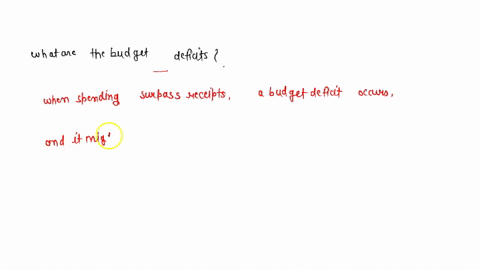 what are the budget deficits ?
when spending surpass receipts, a budget deficit occurs,
and it mig